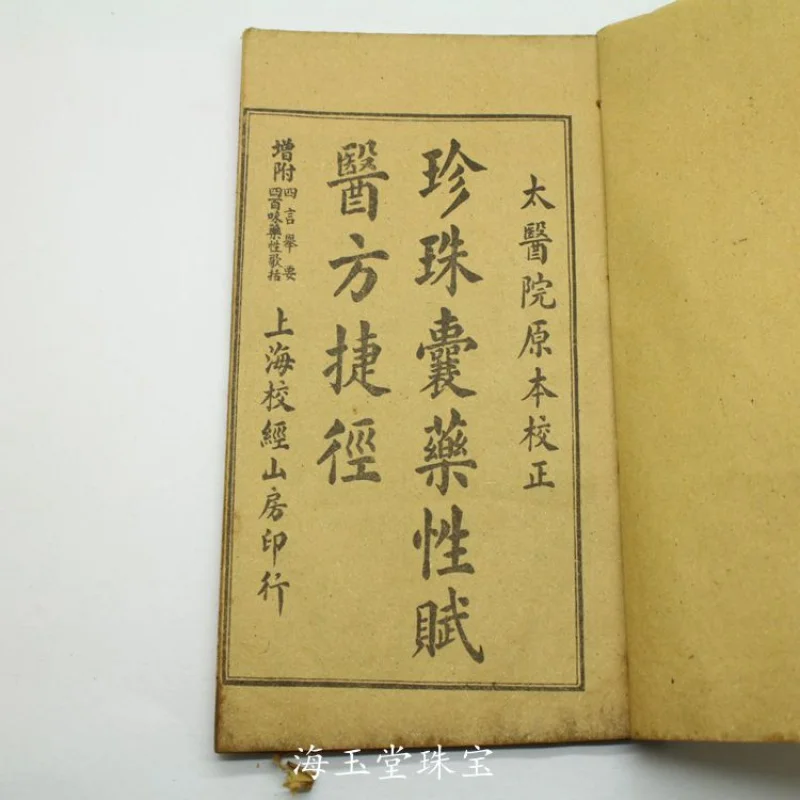 太醫院原本校正
珍珠囊藥性賦
醫方捷徑
增附
四言舉要
四百味藥性歌括
上海校經山房印行
海玉堂珠宝